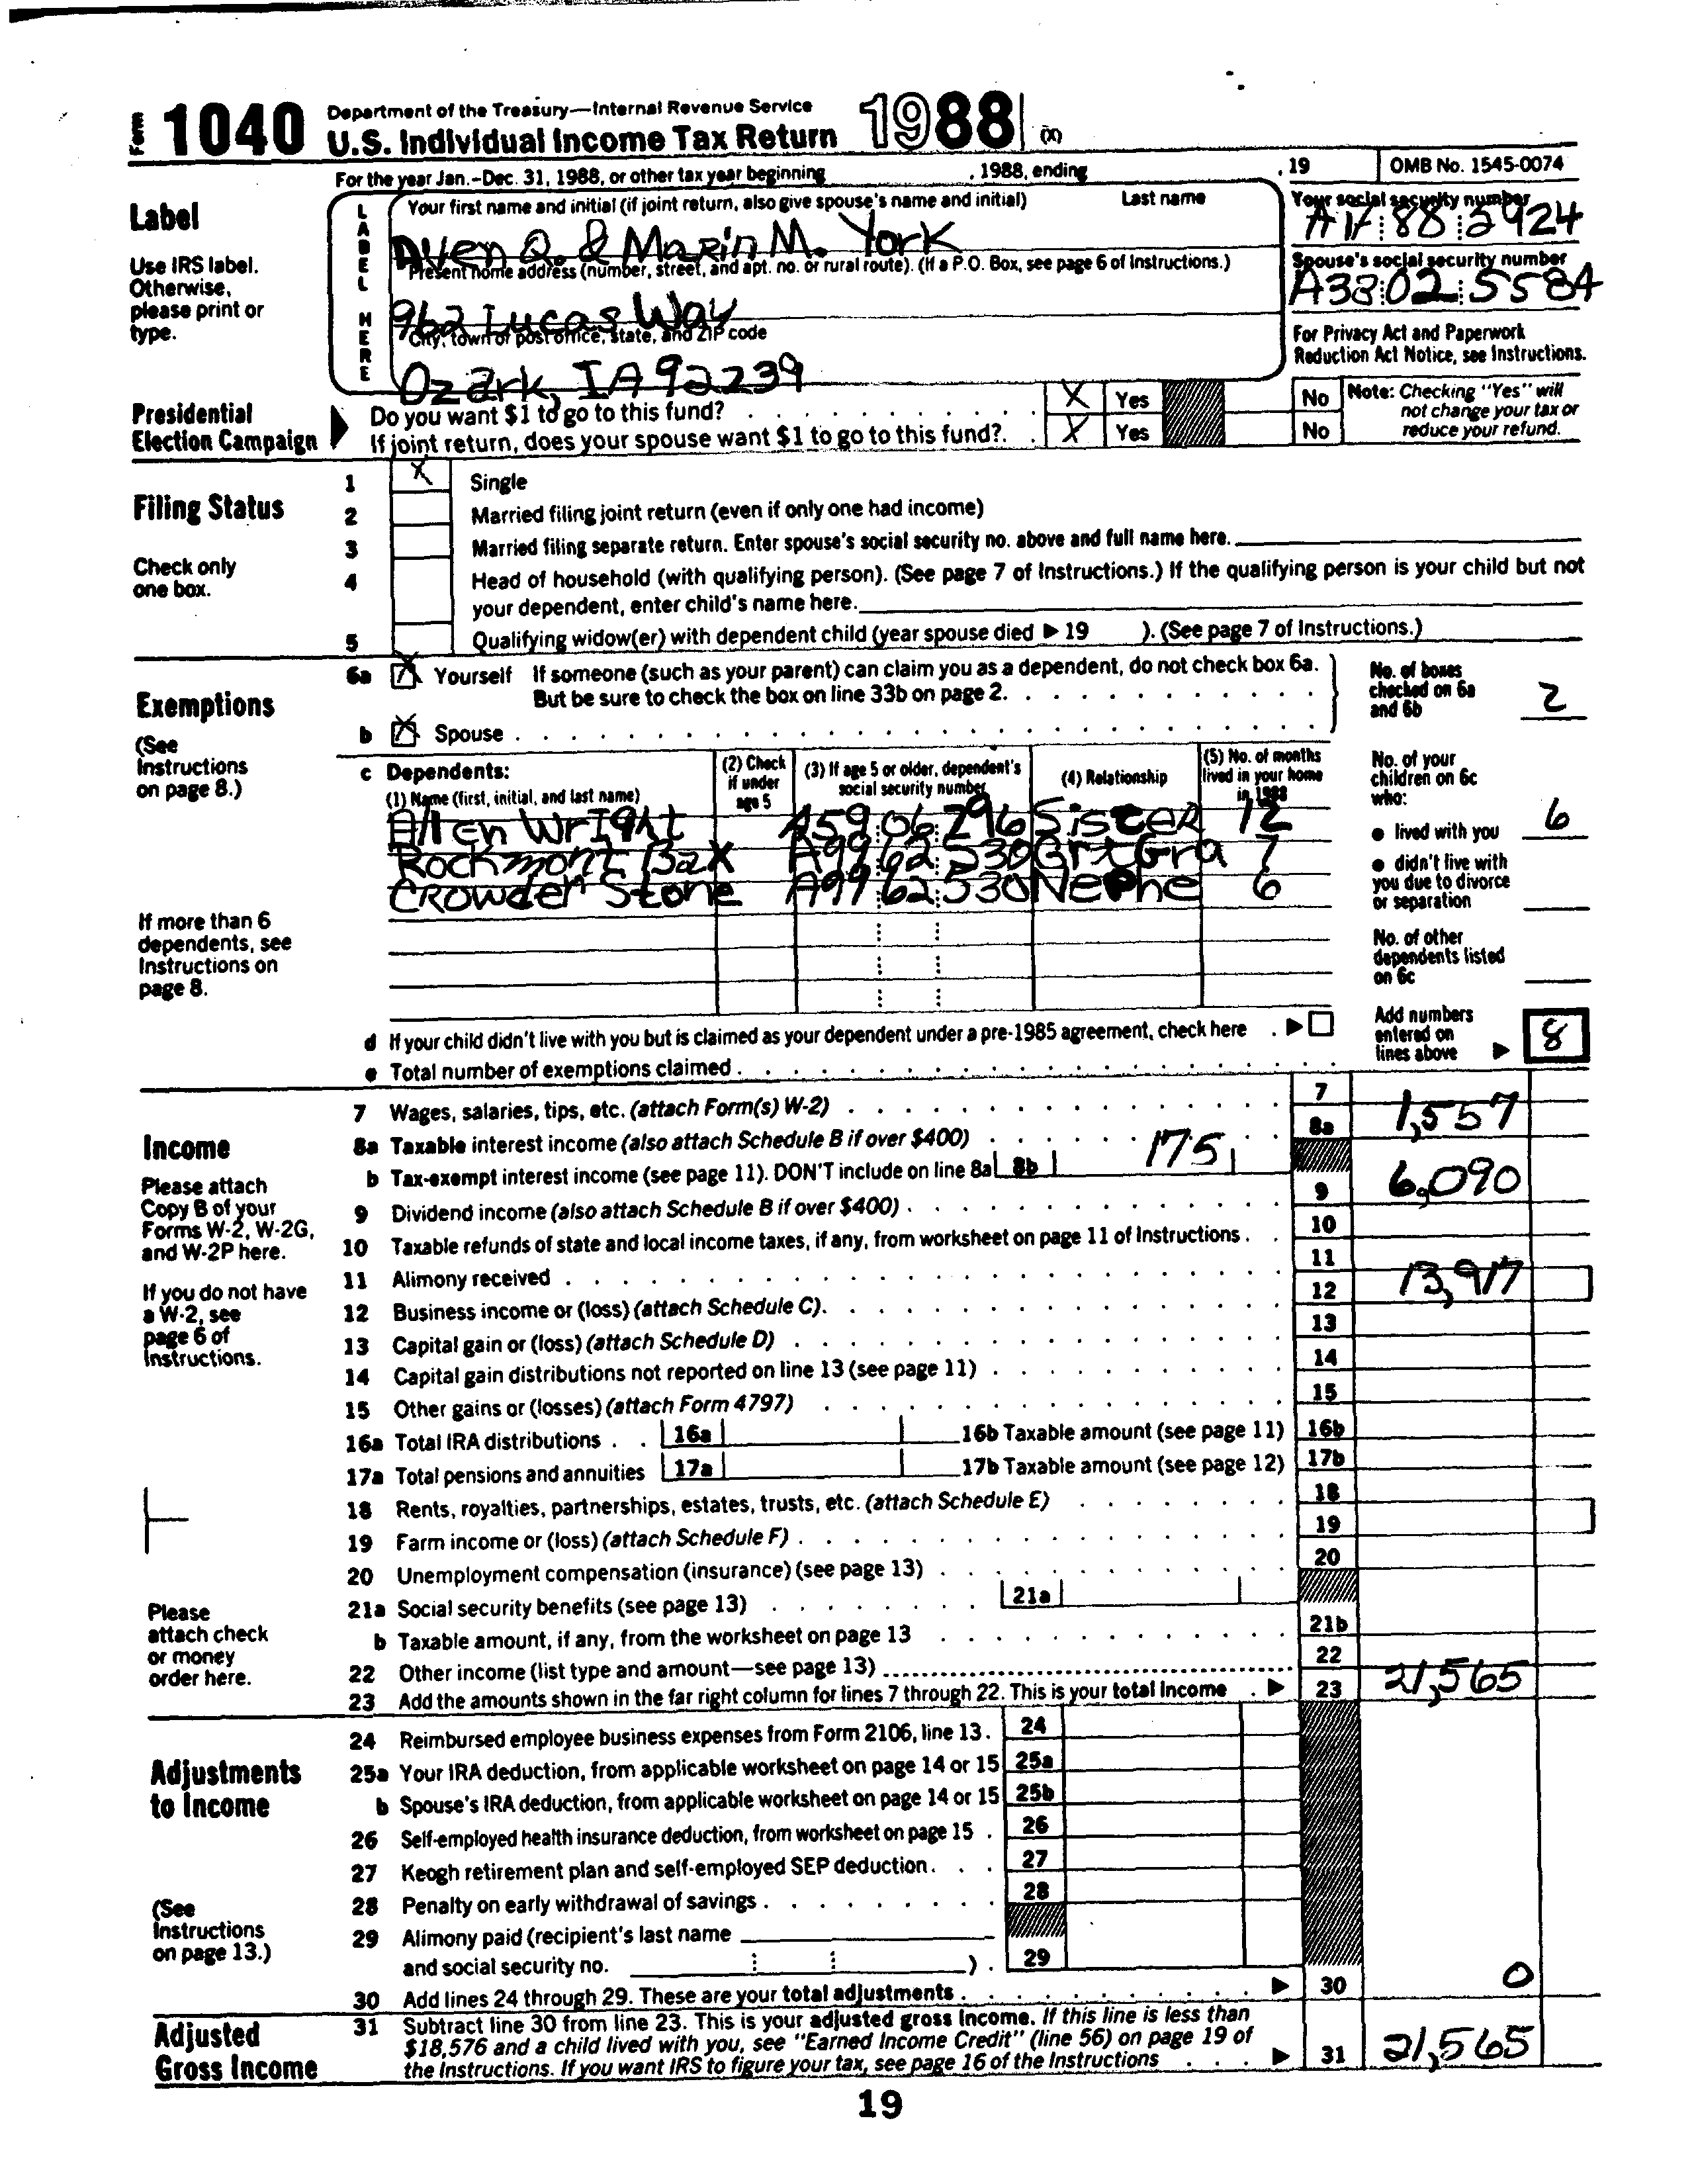 Form 1040 Department of the Treasury—Internal Revenue Service
U.S. Individual Income Tax Return 1988 (X)
For the year Jan.-Dec. 31, 1988, or other tax year beginning , 1988, ending , 19 OMB No. 1545-0074
Label
Use IRS label. Otherwise, please print or type.
LABEL HERE
Your first name and initial (if joint return, also give spouse's name and initial) Last name
& M. York
Your social security number
A17 88 2924
Present home address (number, street, and apt. no. or rural route). (If a P.O. Box, see page 6 of Instructions.)
962 Lucas Way
Spouse's social security number
A38 02 5584
City, town or post office, state, and ZIP code
Ozark, IA 92239
For Privacy Act and Paperwork Reduction Act Notice, see Instructions.
Presidential Election Campaign
Do you want $1 to go to this fund? X Yes No
If joint return, does your spouse want $1 to go to this fund? X Yes No
Note: Checking "Yes" will not change your tax or reduce your refund.
Filing Status
Check only one box.
1 X Single
2 Married filing joint return (even if only one had income)
3 Married filing separate return. Enter spouse's social security no. above and full name here.
4 Head of household (with qualifying person). (See page 7 of Instructions.) If the qualifying person is your child but not
your dependent, enter child's name here.
5 Qualifying widow(er) with dependent child (year spouse died ▶ 19 ). (See page 7 of Instructions.)
Exemptions
(See Instructions on page 8.)
6a X Yourself If someone (such as your parent) can claim you as a dependent, do not check box 6a.
But be sure to check the box on line 33b on page 2.
b X Spouse
No. of boxes checked on 6a and 6b 2
c Dependents:
(1) Name (first, initial, and last name)
(2) Check if under age 5
(3) If age 5 or older, dependent's social security number
(4) Relationship
(5) No. of months lived in your home in 1988
Allen WrIght A59 06 796 SisteR 12
Rockmont Bax A99 62 530 GrtGra 7
CRowder Stone A99 62 530 Nephe 6
No. of your children on 6c who:
● lived with you 6
● didn't live with you due to divorce or separation
No. of other dependents listed on 6c
If more than 6 dependents, see Instructions on page 8.
d If your child didn't live with you but is claimed as your dependent under a pre-1985 agreement, check here ▶
e Total number of exemptions claimed
Add numbers entered on lines above ▶ 8
Income
Please attach Copy B of your Forms W-2, W-2G, and W-2P here.
If you do not have a W-2, see page 6 of Instructions.
Please attach check or money order here.
7 Wages, salaries, tips, etc. (attach Form(s) W-2) 7
8a Taxable interest income (also attach Schedule B if over $400) 8a 1,557
b Tax-exempt interest income (see page 11). DON'T include on line 8a 8b 175
9 Dividend income (also attach Schedule B if over $400) 9 6,090
10 Taxable refunds of state and local income taxes, if any, from worksheet on page 11 of Instructions 10
11 Alimony received 11
12 Business income or (loss) (attach Schedule C) 12 13,917
13 Capital gain or (loss) (attach Schedule D) 13
14 Capital gain distributions not reported on line 13 (see page 11) 14
15 Other gains or (losses) (attach Form 4797) 15
16a Total IRA distributions 16a 16b Taxable amount (see page 11) 16b
17a Total pensions and annuities 17a 17b Taxable amount (see page 12) 17b
18 Rents, royalties, partnerships, estates, trusts, etc. (attach Schedule E) 18
19 Farm income or (loss) (attach Schedule F) 19
20 Unemployment compensation (insurance) (see page 13) 20
21a Social security benefits (see page 13) 21a
b Taxable amount, if any, from the worksheet on page 13 21b
22 Other income (list type and amount—see page 13) 22
23 Add the amounts shown in the far right column for lines 7 through 22. This is your total income ▶ 23 21,565
Adjustments to Income
(See Instructions on page 13.)
24 Reimbursed employee business expenses from Form 2106, line 13. 24
25a Your IRA deduction, from applicable worksheet on page 14 or 15 25a
b Spouse's IRA deduction, from applicable worksheet on page 14 or 15 25b
26 Self-employed health insurance deduction, from worksheet on page 15 26
27 Keogh retirement plan and self-employed SEP deduction 27
28 Penalty on early withdrawal of savings 28
29 Alimony paid (recipient's last name
and social security no. ) 29
30 Add lines 24 through 29. These are your total adjustments ▶ 30 0
Adjusted Gross Income
31 Subtract line 30 from line 23. This is your adjusted gross income. If this line is less than
$18,576 and a child lived with you, see "Earned Income Credit" (line 56) on page 19 of
the Instructions. If you want IRS to figure your tax, see page 16 of the Instructions ▶ 31 21,565
19